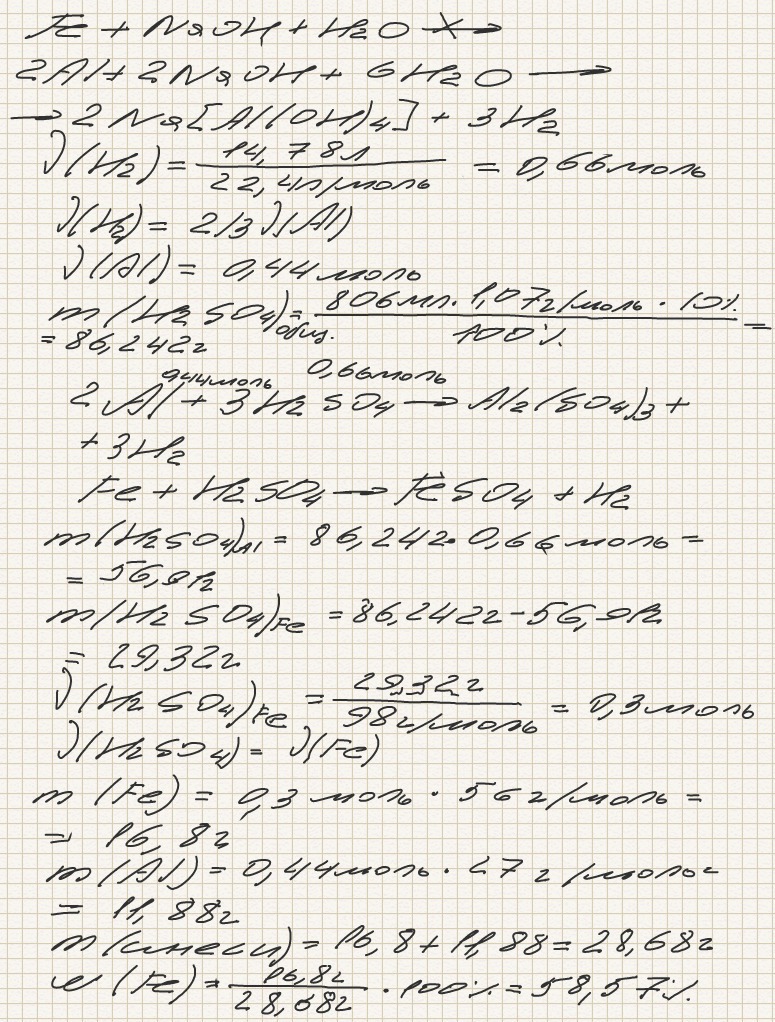 Fe + NaOH + H₂O ↛
2Al + 2NaOH + 6H₂O →
→ 2Na[Al(OH)₄] + 3H₂
ν(H₂) = 14,78л / 22,4л/моль = 0,66моль
ν(H₂) = 2/3 ν(Al)
ν(Al) = 0,44моль
m(H₂SO₄)общ. = 806мл. 1,07г/моль · 10% / 100% =
= 86,242г
0,44моль 0,66моль
2Al + 3H₂SO₄ → Al₂(SO₄)₃ +
+ 3H₂
Fe + H₂SO₄ → FeSO₄ + H₂
m(H₂SO₄)Al = 86,242. 0,66моль =
= 56,92г
m(H₂SO₄)Fe = 86,242г - 56,92
= 29,322г
ν(H₂SO₄)Fe = 29,322г / 98г/моль = 0,3моль
ν(H₂SO₄) = ν(Fe)
m(Fe) = 0,3моль · 56г/моль =
= 16,8г
m(Al) = 0,44моль · 27г/моль =
= 11,88г
m(смеси) = 16,8 + 11,88 = 28,68г
ω(Fe) = 16,8г / 28,68г · 100% = 58,57%